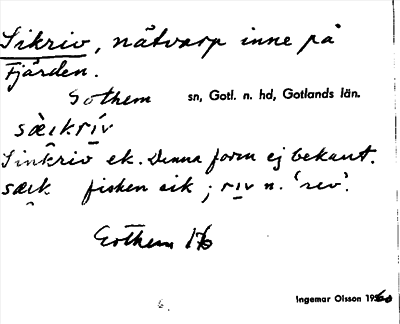 Sikriv, nätvarp inne på
Fjärden.
Gothem sn, Gotl. n. hd, Gotlands län.
sæɪkrív
Sinkriv ek. Denna form ej bekant.
sæɪk fisken sik; rɪv n. 'rev'.
Gothem 1⁄6
Ingemar Olsson 1960
6.